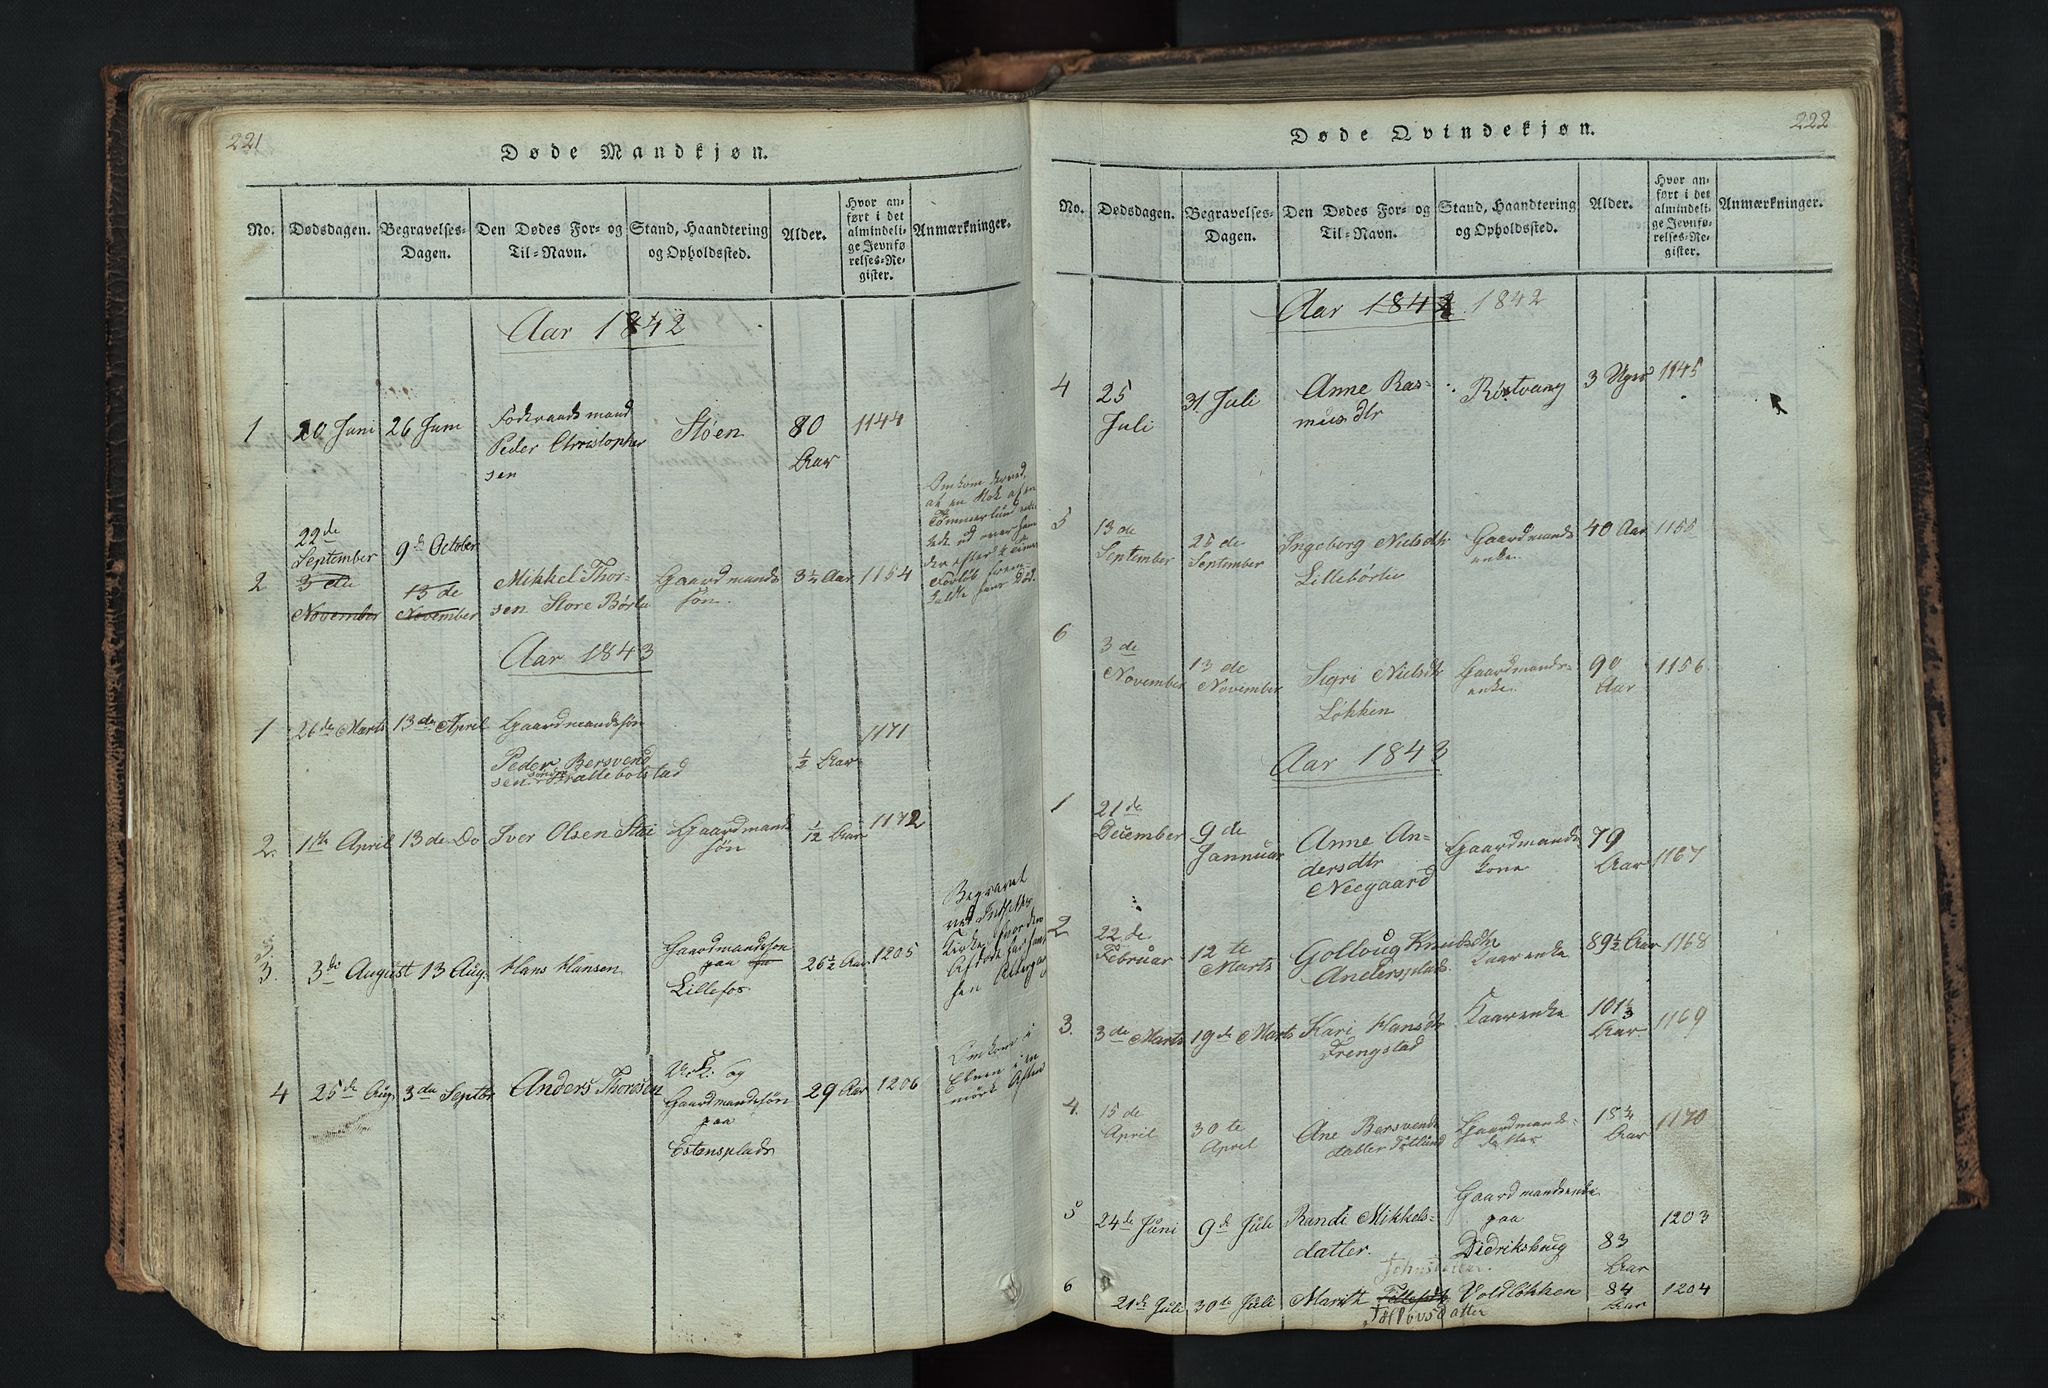 221
Døde Mandkjøn.
No.
Dødsdagen.
Begravelses-
Dagen.
Den Dødes For- og
Til-Navn.
Stand, Haandtering
og Opholdssted.
Alder.
Hvor an-
ført i det
almindeli-
ge Jevnfø-
relses-Re-
gister.
Anmærkninger.
Aar 1842
1
20 Juni
26 Juni
Foderaadsmand
Peder Christopher
sen
Støen
80
Aar
1144
2
22de
September
3 die
November
9de October
13 de
November
Mikkel Thor-
sen Store Børli
Gaardmands
søn.
3½ Aar
1154
Omkom
Aar 1843
1
26de Marts
13de April
Gaardmandssøn
Peder Bersvend
sen Hallebolstad
½ Aar
1171
2.
1ste April
13 de Do
Iver Olsen Støi
Gaardmands
søn
1/12 Aar
1172
3.
3.
3de August
13 Aug.
Hans Hansen
Gaardmandssøn
paa
Lillefos
26½ Aar.
1205
Begravet
ved
Kirke, hvor den
Afdøde
4
25de Aug.
3die Septbr
Anders Thoresen
U:K: og
Gaardmandssøn
paa
Estensplads
29 Aar
1206
Omkom i
Elven i en
mørk Aften
222
Døde Qvindekjøn.
No.
Dødsdagen.
Begravelses-
Dagen.
Den Dødes For- og
Til-Navn.
Stand, Haandtering
og Opholdssted.
Alder.
Hvor an-
ført i det
almindeli-
ge Jevnfø-
relses-Re-
gister.
Anmærkninger.
Aar 1842 1842
4
25
Juli
31 Juli
Anne Ras-
mus dtr
Røstvang
3 Uger
1145
5
13 de
September
25 de
September
Ingeborg Nielsdtr
Lillebørli
Gaardmands
enke.
40 Aar
1155
6
3 de
November
13 de
November
Sigri Nielsdtr
Løkken
Gaardmands-
enke.
90
Aar
1156
Aar 1843
1
21 de
December
9 de
Jannuar
Anne An-
dersdtr
Neegaard
Gaardmands
kone
79
Aar
1167
2
22 de
Februar
12 te
Marts
Gollaug Knudsdtr
Andersplads.
Kaarenke
89½ Aar
1168
3.
3de Marts
19de Marts
Kari Hansdtr
Frengstad
Kaarenke
101⅓
Aar
1169
4.
15 de
April
30 te
April
Ane Bersvends
datter Estlund
Gaardmands-
datter
18¼
Aar
1170
5
24de Juni
9de Juli
Randi Mikkels-
datter.
Gaardmandsenke
paa
Didrikshaug
83
Aar
1203
6
21de Juli
30te Juli
Johnsdatter.
Marith Tollefsdtr
Voldløkken
84
Aar
1204